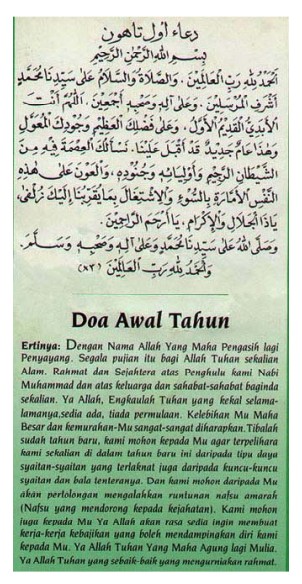 دعاء أول تاهون
بِسْمِ اللهِ الرَّحْمٰنِ الرَّحِيْمِ
اَلْحَمْدُ لِلّٰهِ رَبِّ الْعَالَمِيْنَ. وَالصَّلَاةُ وَالسَّلَامُ عَلَى سَيِّدِنَا مُحَمَّدٍ
أَشْرَفِ الْمُرْسَلِيْنَ. وَعَلَى آلِهِ وَصَحْبِهِ أَجْمَعِيْنَ. اَللّٰهُمَّ أَنْتَ
الْأَبَدِيُّ الْقَدِيْمُ الْأَوَّلُ. وَعَلَى فَضْلِكَ الْعَظِيْمِ وَجُوْدِكَ الْمُعَوَّلُ
وَهٰذَا عَامٌ جَدِيْدٌ قَدْ أَقْبَلَ عَلَيْنَا. نَسْأَلُكَ الْعِصْمَةَ فِيْهِ مِنَ
الشَّيْطَانِ الرَّجِيْمِ وَأَوْلِيَائِهِ وَجُنُوْدِهِ. وَالْعَوْنَ عَلَى هٰذِهِ
النَّفْسِ الْأَمَّارَةِ بِالسُّوْءِ وَالْاِشْتِغَالَ بِمَا يُقَرِّبُنَا إِلَيْكَ زُلْفَى
يَاذَا الْجَلَالِ وَالْإِكْرَامِ. يَا أَرْحَمَ الرَّاحِمِيْنَ.
وَصَلَّى اللهُ عَلَى سَيِّدِنَا مُحَمَّدٍ وَعَلَى آلِهِ وَصَحْبِهِ وَسَلَّمَ.
وَالْحَمْدُ لِلّٰهِ رَبِّ الْعَالَمِيْنَ (٨٣)
Doa Awal Tahun
Ertinya: Dengan Nama Allah Yang Maha Pengasih lagi
Penyayang. Segala pujian itu bagi Allah Tuhan sekalian
Alam. Rahmat dan Sejahtera atas Penghulu kami Nabi
Muhammad dan atas keluarga dan sahabat-sahabat baginda
sekalian. Ya Allah, Engkaulah Tuhan yang kekal selama-
lamanya,sedia ada, tiada permulaan. Kelebihan Mu Maha
Besar dan kemurahan-Mu sangat-sangat diharapkan.Tibalah
sudah tahun baru, kami mohon kepada Mu agar terpelihara
kami sekalian di dalam tahun baru ini daripada tipu daya
syaitan-syaitan yang terlaknat juga daripada kuncu-kuncu
syaitan dan bala tenteranya. Dan kami mohon daripada Mu
akan pertolongan mengalahkan runtunan nafsu amarah
(Nafsu yang mendorong kepada kejahatan). Kami mohon
juga kepada Mu Ya Allah akan rasa sedia ingin membuat
kerja-kerja kebajikan yang boleh mendampingkan diri kami
kepada Mu. Ya Allah Tuhan Yang Maha Agung lagi Mulia.
Ya Allah Tuhan yang sebaik-baik yang mengurniakan rahmat.